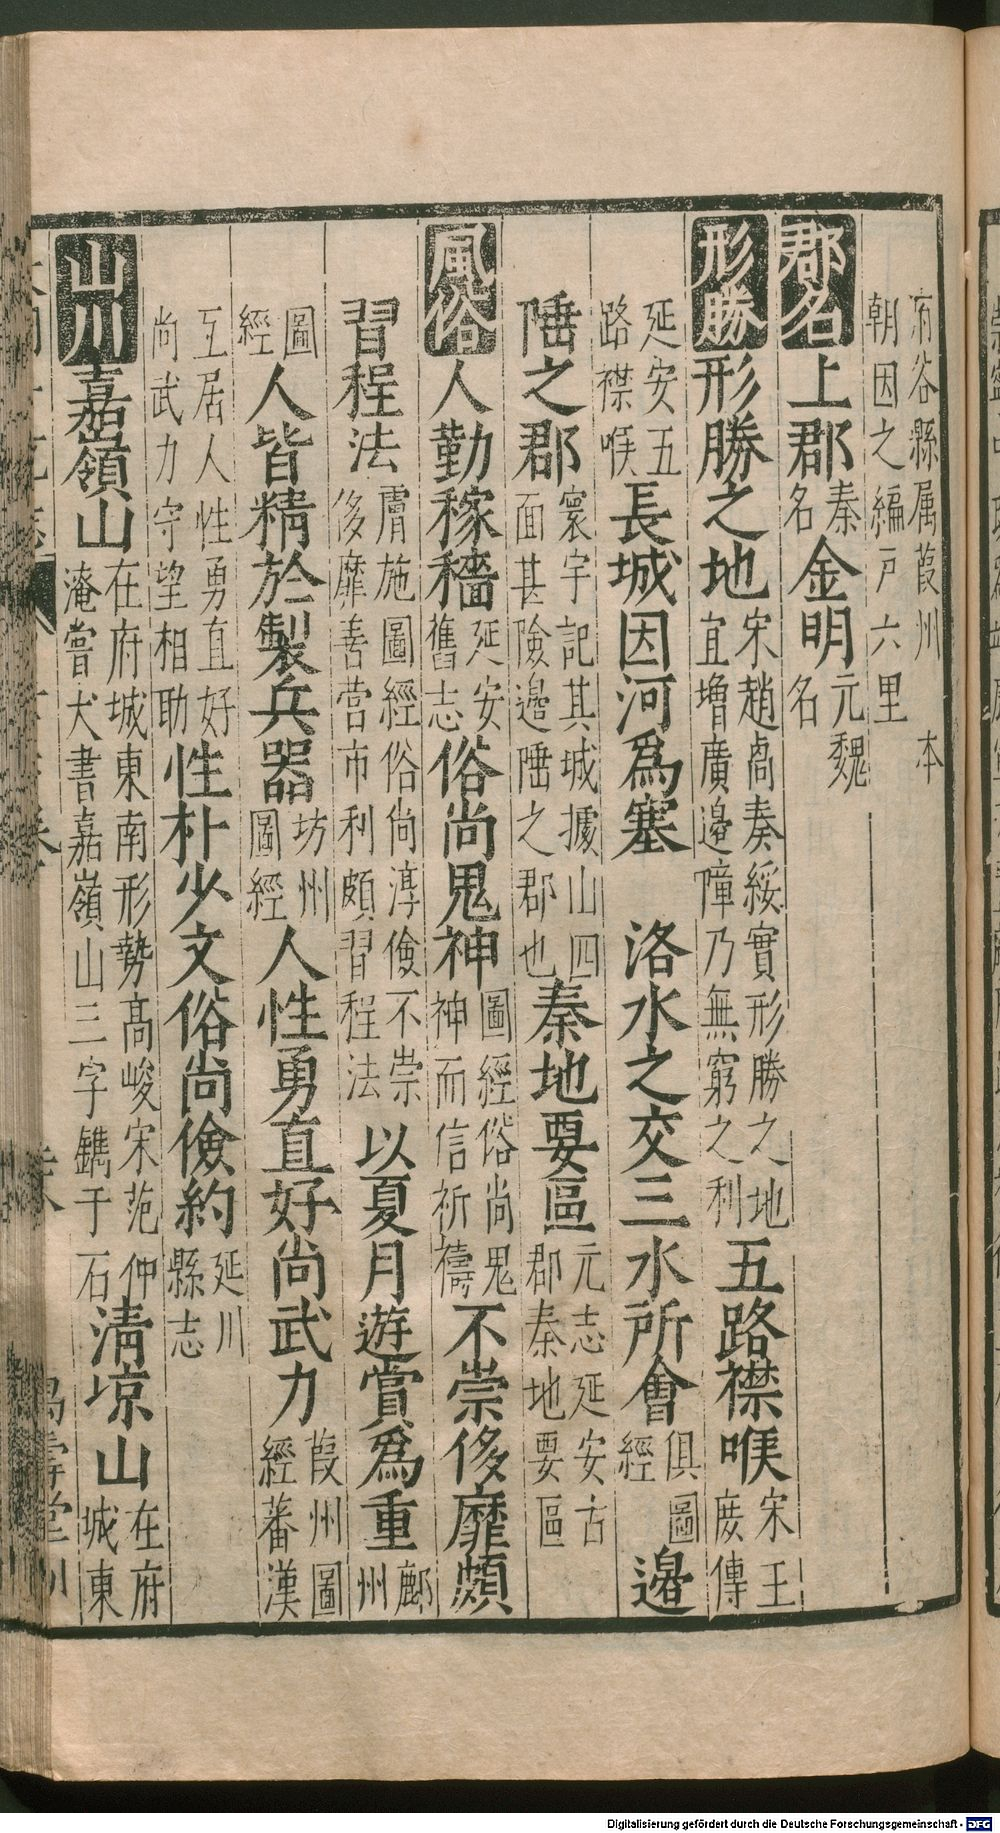 府谷縣属葭州 本朝因之編戸六里
郡名 上郡秦名金明元魏名
形勝 形勝之地宋趙卨奏綏實形勝之地宜增廣邊障乃無窮之利五路襟喉宋王庶傳
延安五路襟喉長城因河爲塞 洛水之交三水所會俱圖經 邊
陲之郡寰宇記其城據山四面甚險邊陲之郡也秦地要區元志延安古郡秦地要區
風俗 人勤稼穡延安舊志俗尚鬼神圖經俗尚鬼神而信祈禱不崇侈靡頗
習程法膚施圖經俗尚淳儉不崇侈靡善營市利頗習程法 以夏月遊賞爲重鄜州
圖經人皆精於製兵器坊州圖經人性勇直好尚武力葭州圖經蕃漢
互居人性勇直好尚武力守望相助性朴少文俗尚儉約延川縣志
山川 嘉嶺山在府城東南形勢髙峻宋范仲淹嘗大書嘉嶺山三字鐫于石清凉山在府城東
Digitalisierung gefördert durch die Deutsche Forschungsgemeinschaft - DFG